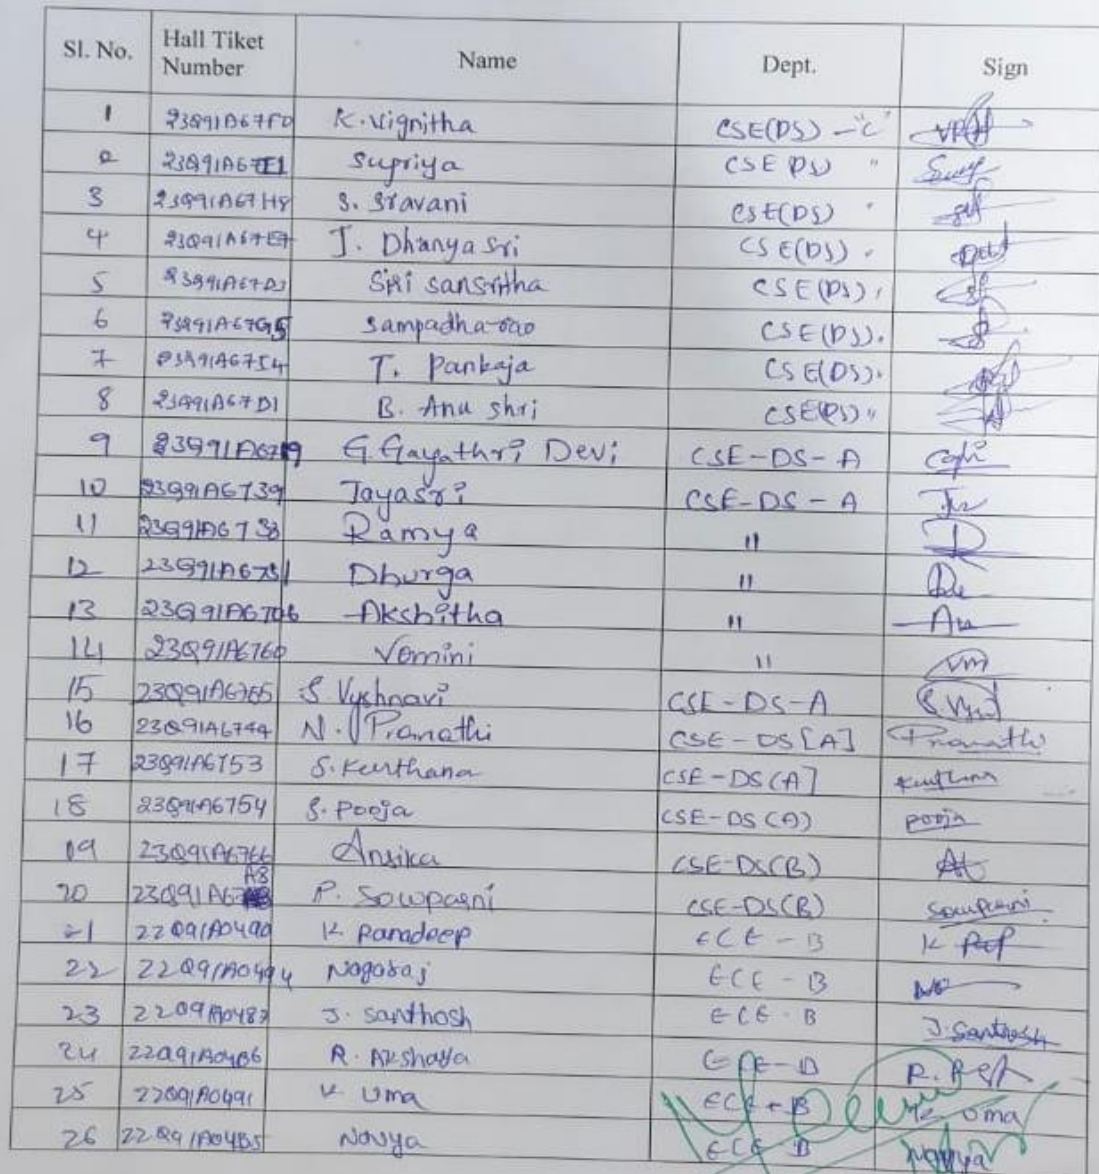 Sl. No. Hall Tiket Number Name Dept. Sign
1 23Q91A67F0 K. Vignitha CSE(DS) - "C"
2 23Q91A67E1 Supriya CSE DS) "
3 23Q91A67H8 S. Sravani CSE(DS) "
4 23Q91A67E7 J. Dhanya Sri CSE(DS) "
5 Siri sansritha CSE(DS)
6 23Q91A67G5 Sampadha rao CSE(DS).
7 T. Pankaja CSE(DS).
8 23Q91A67D1 B. Anu shri CSE(DS) "
9 23Q91A6719 G Gayathri Devi CSE-DS-A
10 23Q91A6739 Jayasri CSE-DS-A
11 23Q91A6738 Ramya "
12 23Q91A6731 Dhurga "
13 23Q91A6706 Akshitha "
14 23Q91A6760 Vemini " Vm
15 23Q91A6765 S Vyshnavi CSE-DS-A
16 23Q91A6744 N. Pranathi CSE-DS[A] Pranathi
17 23Q91A6753 S. Keerthana CSE-DS(A] Keerthana
18 23Q91A6754 S. Pooja CSE-DS(A) pooja
19 23Q91A6766 Ansika CSE-DS(B)
20 23Q91A67A8 P. Sowparni CSE-DS(B) Sowparni
21 22Q91A0490 K Paradeep ECE-B
22 22Q91A0494 Nagaraj ECE-B
23 22Q91A0487 J. Santhosh ECE-B J. Santhosh
24 22Q91A04B6 R. Akshaya ECE-B
25 22Q91A0491 K Uma ECE-B K Uma
26 22Q91A04B5 Navya ECE B Navya